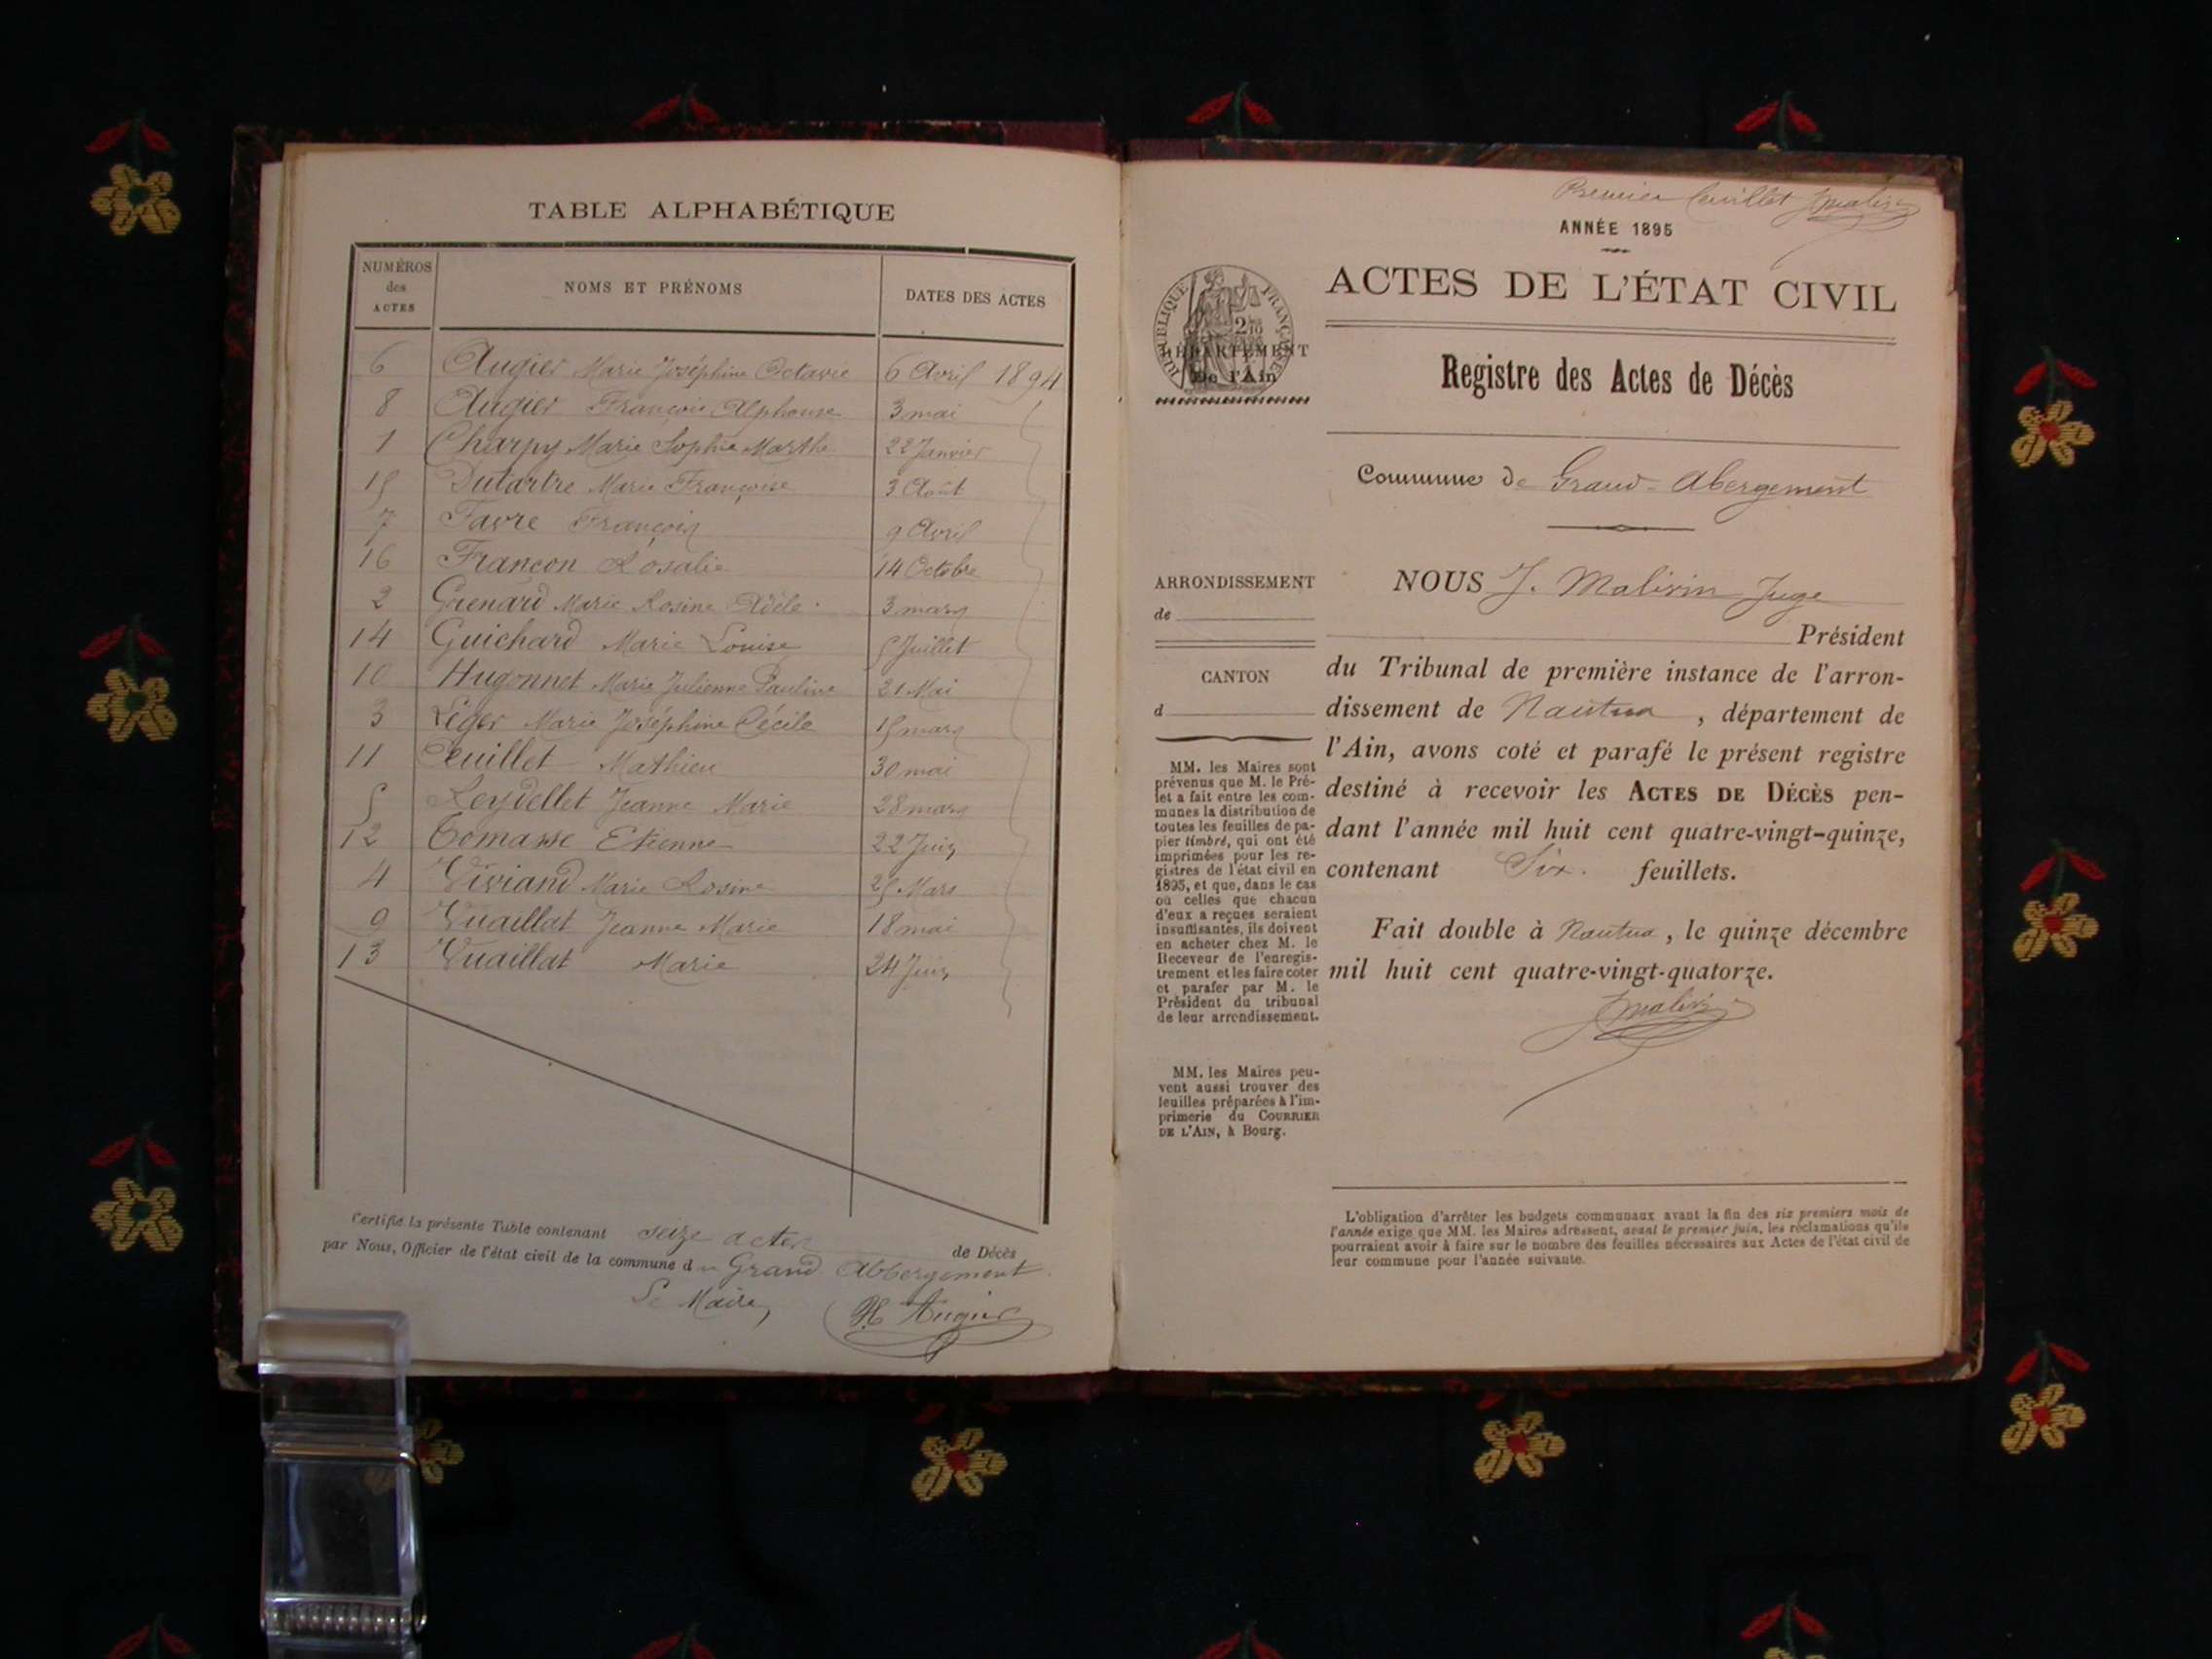 TABLE ALPHABÉTIQUE
NUMÉROS des ACTES NOMS ET PRÉNOMS DATES DES ACTES
6 Augier Marie Joséphine Octavie 6 Avril 1894
8 Augier François Alphonse 3 mai
1 Charpy Marie Sophie Marthe 22 Janvier
15 Dutartre Marie Françoise 3 Août
7 Favre François 9 Avril
16 Françon Rosalie 14 Octobre
2 Grenard Marie Rosine Adèle 3 mars
14 Guichard Marie Louise 5 Juillet
10 Hugonnet Marie Julienne Pauline 21 Mai
3 Léger Marie Joséphine Cécile 15 mars
11 Mathieu 30 mai
5 Reydellet Jeanne Marie 28 mars
12 Tomasse Etienne 22 Juin
4 Viviand Marie Rosine 25 Mars
9 Vuaillat Jeanne Marie 18 mai
13 Vuaillat Marie 24 Juin
Certifié la présente Table contenant seize actes de Décès
par Nous, Officier de l'état civil de la commune d u Grand Abbergement
Le Maire,
H Augier
Premier feuillet JMalivin
ANNÉE 1895
ACTES DE L'ÉTAT CIVIL
RÉPUBLIQUE FRANÇAISE
DÉPARTEMENT
De l'Ain
Registre des Actes de Décès
Commune de Grand-Abergement
ARRONDISSEMENT
de
CANTON
d
MM. les Maires sont
prévenus que M. le Pré-
fet a fait entre les com-
munes la distribution de
toutes les feuilles de pa-
pier timbré, qui ont été
imprimées pour les re-
gistres de l'état civil en
1895, et que, dans le cas
où celles que chacun
d'eux a reçues seraient
insuffisantes, ils doivent
en acheter chez M. le
Receveur de l'enregis-
trement et les faire coter
et parafer par M. le
Président du tribunal
de leur arrondissement.
MM. les Maires peu-
vent aussi trouver des
feuilles préparées à l'im-
primerie du COURRIER
DE L'AIN, à Bourg.
NOUS J. Malivin Juge
Président
du Tribunal de première instance de l'arron-
dissement de Nantua, département de
l'Ain, avons coté et parafé le présent registre
destiné à recevoir les ACTES DE DÉCÈS pen-
dant l'année mil huit cent quatre-vingt-quinze,
contenant Six. feuillets.
Fait double à Nantua, le quinze décembre
mil huit cent quatre-vingt-quatorze.
JMalivin
L'obligation d'arrêter les budgets communaux avant la fin des six premiers mois de
l'année exige que MM. les Maires adressent, avant le premier juin, les réclamations qu'ils
pourraient avoir à faire sur le nombre des feuilles nécessaires aux Actes de l'état civil de
leur commune pour l'année suivante.